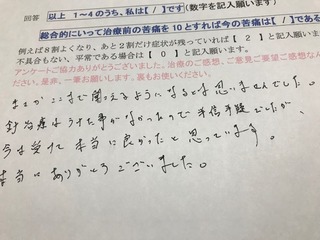 回答　以上 １～４のうち、私は【 / 】です（数字を記入願います）
総合的にいって治療前の苦痛を10とすれば今の苦痛は【 / 】である
例えば８割がよくなり、あと２割だけ症状が残っていれば【 ２ 】と記入願います。
不具合もない、平常である場合は【 ０ 】と記入願います。
アンケートご協力ありがとうございました。治療のご感想、ご意見ご要望ご感想なん
ださい。是非、一筆お願いします。裏もお使いください。
まさかここまで聞こえるようになるとは思いませんでした。
針治療はうけた事がなかったので半信半疑でしたが
今は受けて本当に良かったと思っています。
本当にありがとうございました。